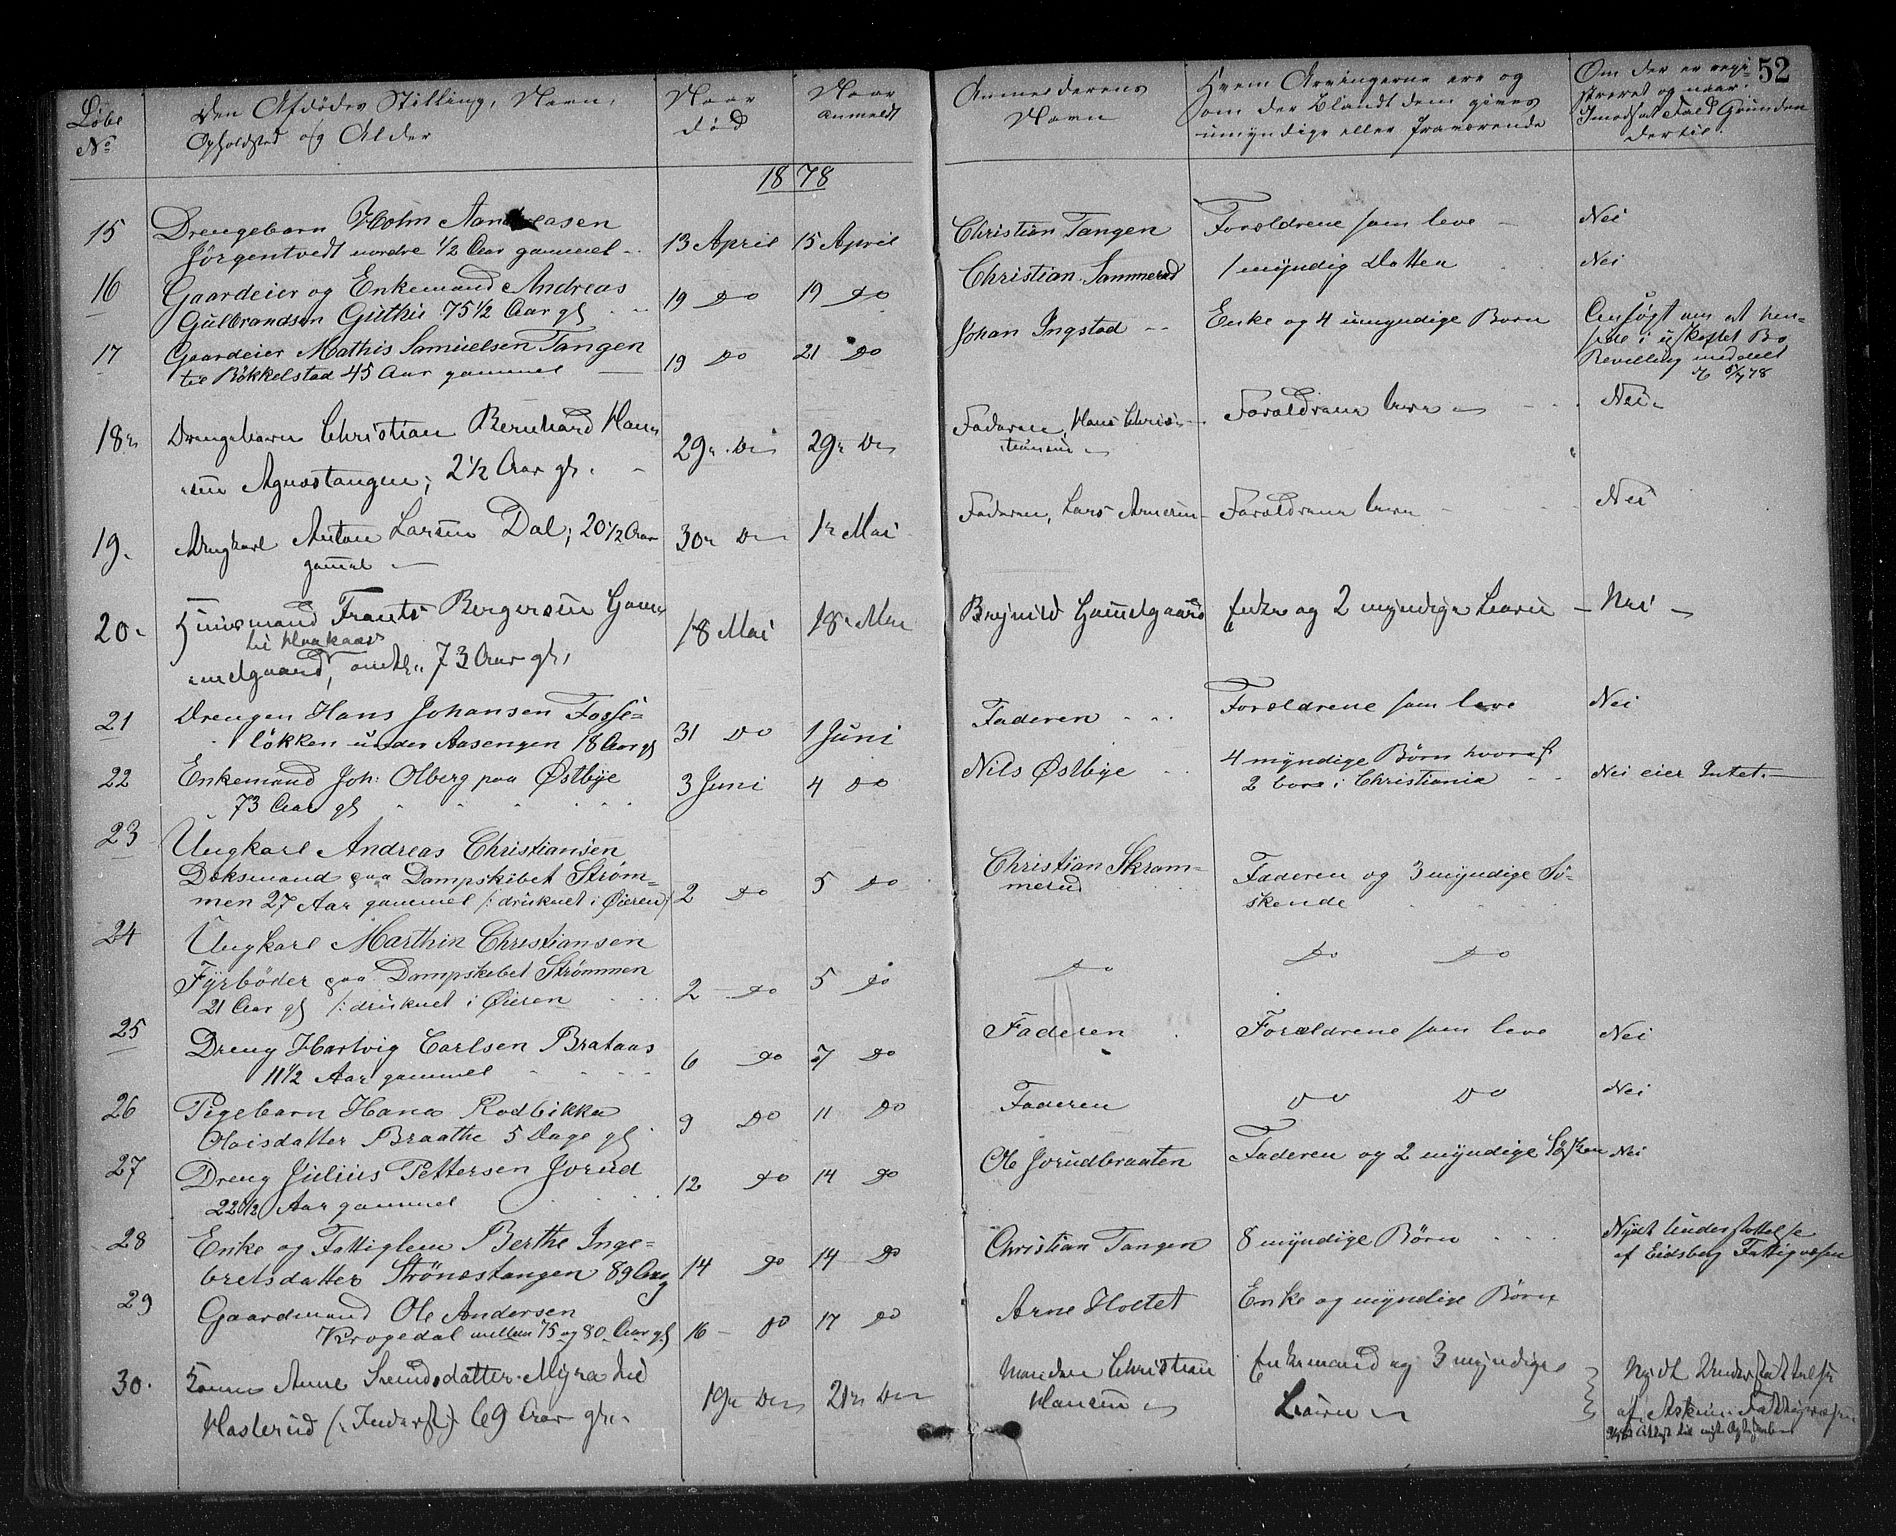 52
Løbe
No
Den Afdødes Stilling, Navn,
Opholdsted og Alder
Naar
død
Naar
anmeldt
Anmelderens
Navn
Hvem Arvingerne ere og
om der blandt dem gives
umyndige eller fraværende
Om der er regi-
streret og naar.
I modsat Fald Grunden
dertil.
1878
15 Drengebarn Holm Andreasen
Jörgentvedt nordre 1/2 Aar gammel 13 April 15 April Christian Tangen Forældrene som leve Nei
16 Gaardeier og Enkemand Andreas
Gulbrandsen Guthii 75 1/2 Aar gl 19 do 19 do Christian Sammerud 1 myndig Datter Nei
17 Gaardeier Mathis Samuelsen Tangen
til Bökkelstad 45 Aar gammel 19 do 21 do Johan Ingstad Enke og 4 umyndige Børn Ansögt om at hen-
sidde i uskiftet Bo
Bevilling meddelt
78
18. Drengebarn Christian Bernhard Han-
sen Agnæstangen, 2 1/2 Aar gl. 29 do 29 do Faderen, Hans Chris-
tiansen Forældrene leve Nei
19. Ungkarl Anton Larsen Dal; 20 1/2 Aar
gammel 30 do 1 Mai Faderen, Lars Arnesen Forældrene leve Nei
20. Huusmand Frants Bergersen Gam-
til Haakaas
melgaard, omtr. 73 Aar gl, 18 Mai 18 Mai Brynild Gamelgaard Enke og 2 myndige Børn Nei
21 Drengen Hans Johansen Fosse-
løkken under Aasengen 18 Aar gl 31 do 1 Juni Faderen Forældrene som leve Nei
22 Enkemand Joh: Olberg paa Østbye
73 Aar gl 3 Juni 4 do Nils Østbye 4 myndige Børn hvoraf
2 bor i Christiania Nei eier Intet.
23 Ungkarl Andreas Christiansen
Deksmand paa Dampskibet Strøm-
men 27 Aar gammel /: druknet i Øieren / 2 do 5 do Christian Skram-
merud Faderen og 3 myndige Sö-
skende
24 Ungkarl Marthin Christiansen
Fyrböder paa Dampskibet Strømmen
21 Aar gl /: druknet i Øieren 2 do 5 do do do do
25 Dreng Hartvig Carlsen Brataas
11 1/2 Aar gammel 6 do 7 do Faderen Forældrene som leve Nei
26 Pigebarn Hana Rodbikka
Olaisdatter Braathe 5 Dage gl 9 do 11 do Faderen do do Nei
27 Dreng Julius Pettersen Jorud
22 1/2 Aar gammel 12 do 14 do Ole Jorudbraaten Faderen og 2 myndige Søsken Nei
28 Enke og Fattiglem Berthe Inge-
bretsdatter Strönæstangen 89 Aar g 14 do 14 do Christian Tangen 8 myndige Børn Nydt Understøttelse
af Eidsberg Fattigvæsen
29 Gaardmand Ole Andersen
Krogedal mellem 75 og 80 Aar gl 16 do 17 do Arne Holtet Enke og myndige Børn
30. Kone Anne Svendsdatter Myra ved
Haslerud (: Inderst :) 69 Aar gl. 19 do 21 do Manden Christian
Hansen Enkemand og 3 myndige
Børn Nydt Understøttelse
af Askim Fattigvæsen